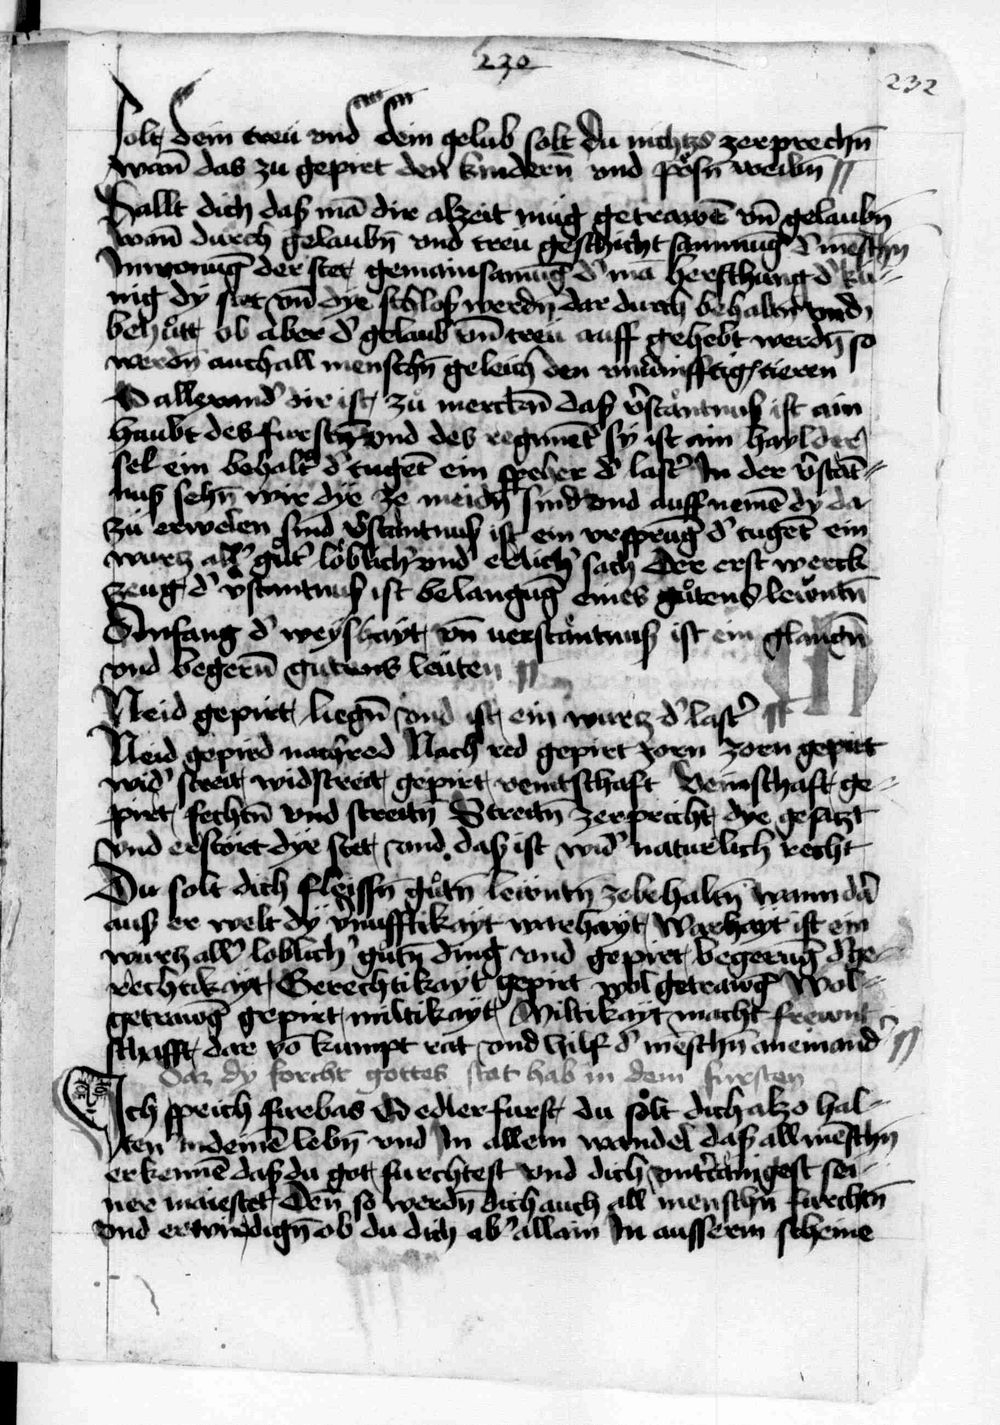 230
232
solt dein treu vnd dein gelub solt du nichtzs zerprechn̄
wan̄ das zu gepirt den kindern̄ vnd pösn̄ weibn̄
Hallt dich daß mā dir alzeit mug getrawē vn̄ gelaubn̄
wan̄ durch gelaubn̄ vnd treu geschicht samnūg d' mēschn̄
Inwonūg der stet gemainsamūg d' mā herschūng d' kü-
nig dy stet vn̄ dye schlos werdn̄ dar durch behaltn̄ vnd
behutt ob aber d' gelaub vn̄ treu auff gehebt werdn̄ so
werdn̄ auch all menschn̄ geleich den vnudnifftig tieren
O allexand' dir ist zu merckn̄ daß v'stäntnuß ist ain
haubt des furstn̄ vnd des regimēt sy ist ain hayl der
sel ein behalt' d' tugēt ein speher d' last' In der v'stāt-
nuß sehn̄ wir dye ze meidn̄ sind vnd auff nemē dy da
zu erwelen sind v'stantnuß ist ein vrsprūg d' tugēt ein
wurtz all' gut' löblich' vnd erlich' sach Der erst werck
zeug d' v'stantnuß ist belangūg eines gutens lewntn̄
Anfang d' weyshayt vn̄ uerstantnuß ist ein
vnd begern̄ gutens leüten
Neid gepirt liegn̄ vnd ist ein wurtz d' last'
Neid gepird nachred Nach red gepirt zorn zorn gepirt
wid' streit widstreit gepirt veintschaft Veinschaft ge-
pirt fechtn̄ vnd streitn̄ Streitn̄ zerpricht dye gesatzt
vnd erstört dye stet vnd daß ist wid' naturlich recht
Du solt dich fleissn̄ gutn̄ lewntn̄ zebehaltn̄ wann dar
auß er welt dy v'nufftikayt warhayt Warhayt ist ein
wurtz all' loblich' gutn̄ ding vnd gepirt begerūg d' ge-
rechtikayt Gerechtikayt gepirt wol getrawg Wol-
getrawg gepirt miltikayt Miltikayt macht frewnt
schafft dar vō kumpt rat vnd hilf d' mēschn̄ aneinand'
Daz dy forcht gottes stat hab in dem fursten
Ich sprich furbas O edler furst du solt dich alzo hal-
ten in deinē lebn̄ vnd In allem wandel daß all mēschn̄
erkennē daß du got furchtest vnd dich vnt'tanigest sei-
ner maiestet Den̄ so werdn̄ dich auch all menschn̄ furchtn̄
vnd erwirdign̄ ob du dich ab' allain In ausserm scheine